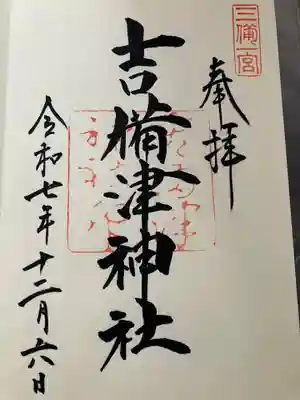 三備一宮
奉拝
吉備津神社
令和七年十二月六日